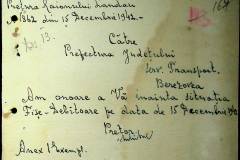 Pretura Raionului Landau
No 1862 din 15 Decembrie 1942.-
164
Către
Prefectura Județului
Serv. Transport,
Berezovca
Am onoare a Vă înainta situația
Fișe Debitoare pe data de 15 Decembrie
Pretor,
Anex 1 exempl.